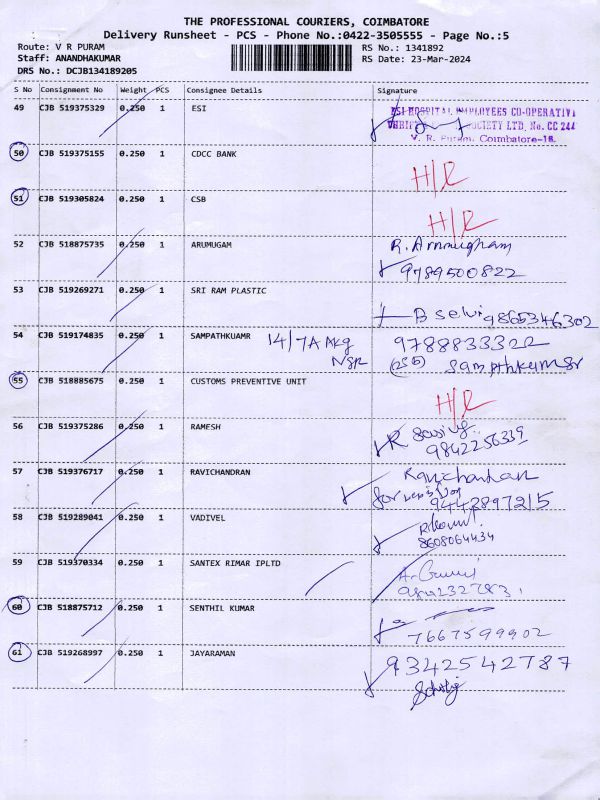 THE PROFESSIONAL COURIERS, COIMBATORE
Delivery Runsheet - PCS - Phone No.:0422-3505555 - Page No.:5
Route: V R PURAM RS No.: 1341892
Staff: ANANDHAKUMAR RS Date: 23-Mar-2024
DRS No.: DCJB134189205
S No Consignment No Weight PCS Consignee Details Signature
49 CJB 519375329 0.250 1 ESI
ESI HOSPITAL EMPLOYEES CO-OPERATIV
SOCIETY LTD, No. CC 244
V. R. Puram, Coimbatore-18.
50 CJB 519375155 0.250 1 CDCC BANK
H/R
51 CJB 519305824 0.250 1 CSB
H/R
52 CJB 518875735 0.250 1 ARUMUGAM R. Arumugham
9789500822
53 CJB 519269271 0.250 1 SRI RAM PLASTIC
B selvi 9865346302
54 CJB 519174835 0.250 1 SAMPATHKUAMR 14/7A AKG 9788833322
NGR sampthkumar
55 CJB 518885675 0.250 1 CUSTOMS PREVENTIVE UNIT
H/R
56 CJB 519375286 0.250 1 RAMESH
9842256339
57 CJB 519376717 0.250 1 RAVICHANDRAN Ravichandran
for
9442897215
58 CJB 519289041 0.250 1 VADIVEL
8608064434
59 CJB 519370334 0.250 1 SANTEX RIMAR IPLTD
60 CJB 518875712 0.250 1 SENTHIL KUMAR
7667599902
61 CJB 519268997 0.250 1 JAYARAMAN 9342542787